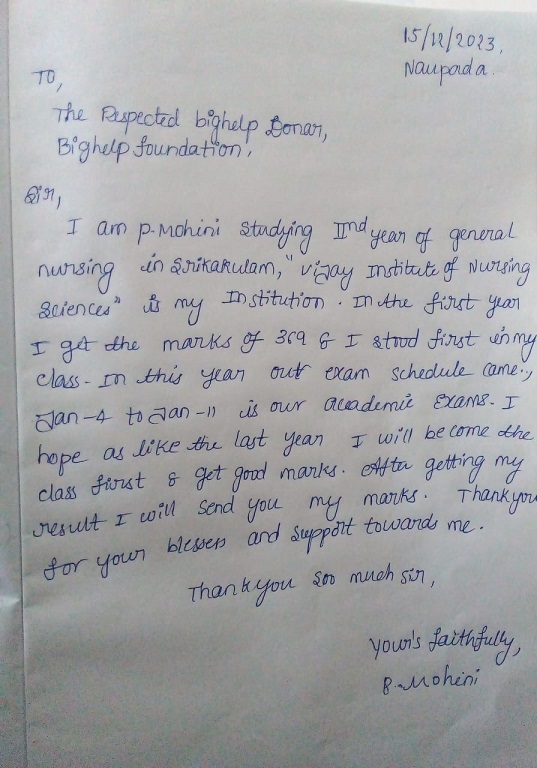 15/12/2023,
Naupada.
TO,
The Respected bighelp Donar,
Bighelp foundation,
Sir,
I am p.Mohini Studying IInd year of general
nursing in Srikakulam, "Vijay Institute of Nursing
Sciences" is my Institution. In the first year
I get the marks of 369 & I stood first in my
class. In this year our exam schedule came.,
Jan-4 to Jan-11 is our academic Exams. I
hope as like the last year I will become the
class first & get good marks. After getting my
result I will send you my marks. Thankyou
for your blesses and support towards me.
Thankyou soo much sir,
Your's faithfully,
P.Mohini